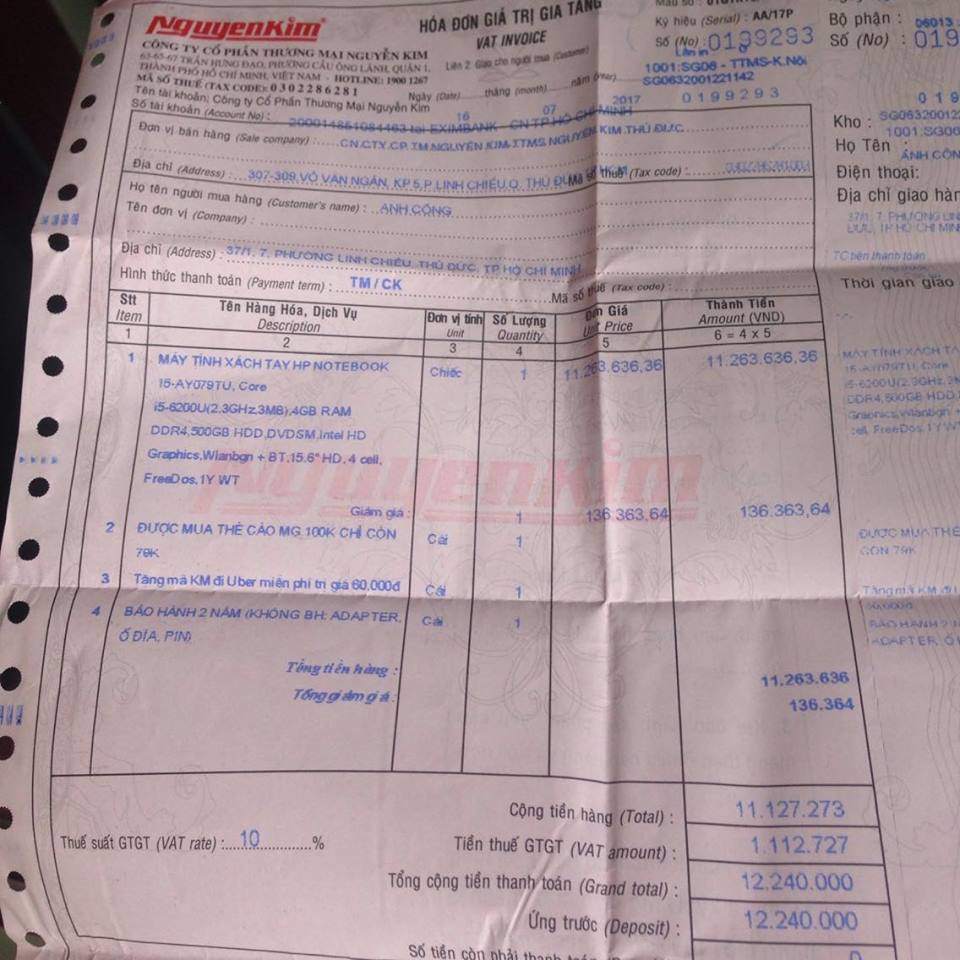 NguyenKim
CÔNG TY CỔ PHẦN THƯƠNG MẠI NGUYỄN KIM
63-65-67 TRẦN HƯNG ĐẠO, PHƯỜNG CẦU ÔNG LÃNH, QUẬN 1,
THÀNH PHỐ HỒ CHÍ MINH, VIỆT NAM - HOTLINE: 1900 1267
MÃ SỐ THUẾ (TAX CODE): 0302286281
Tên tài khoản: Công ty Cổ Phần Thương Mại Nguyễn Kim
Số tài khoản (Account No) : 200014851084463 tại EXIMBANK - CN TP.HỒ CHÍ MINH
HÓA ĐƠN GIÁ TRỊ GIA TĂNG
VAT INVOICE
Liên 2: Giao cho người mua (Customer)
Ngày (Date) 16 tháng (month) 07 năm (Year) 2017
Ký hiệu (Serial) : AA/17P
Số (No) : 0199293
Lần in
1001:SG06 - TTMS-K.Nôi
SG0632001221142
0199293
Đơn vị bán hàng (Sale company) : CN.CTY.CP.TM NGUYEN KIM-TTMS NGUYEN KIM THỦ ĐỨC
Địa chỉ (Address) : 307-309,VÕ VĂN NGÂN, KP.5,P.LINH CHIỂU,Q. THỦ ĐỨC Mã số thuế (Tax code) :
Họ tên người mua hàng (Customer's name) : ANH CÔNG
Tên đơn vị (Company) :
Địa chỉ (Address) : 37/1, 7, PHƯỜNG LINH CHIỂU, THỦ ĐỨC, TP HỒ CHÍ MINH
Hình thức thanh toán (Payment term) : TM / CK Mã số thuế (Tax code) :
Stt Item Tên Hàng Hóa, Dịch Vụ Description Đơn vị tính Unit Số Lượng Quantity Đơn Giá Unit Price Thành Tiền Amount (VND)
1 2 3 4 5 6 = 4 x 5
1 MÁY TÍNH XÁCH TAY HP NOTEBOOK Chiếc 1 11.263.636,36 11.263.636,36
15-AY079TU, Core
i5-6200U(2.3GHz,3MB),4GB RAM
DDR4,500GB HDD,DVDSM,Intel HD
Graphics,Wlanbgn + BT,15.6" HD, 4 cell,
FreeDos,1Y WT
NguyenKim
Giảm giá : 1 136.363,64 136.363,64
2 ĐƯỢC MUA THẺ CÀO MG 100K CHỈ CÒN Cái 1
79K
3 Tặng mã KM đi Uber miễn phí trị giá 60,000đ Cái 1
4 BẢO HÀNH 2 NĂM (KHÔNG BH: ADAPTER, Cái 1
Ổ ĐĨA, PIN)
Tổng tiền hàng : 11.263.636
Tổng giảm giá : 136.364
Cộng tiền hàng (Total) : 11.127.273
Thuế suất GTGT (VAT rate) : 10 % Tiền thuế GTGT (VAT amount) : 1.112.727
Tổng cộng tiền thanh toán (Grand total) : 12.240.000
Ứng trước (Deposit) : 12.240.000
Số tiền còn phải thanh 0
Bộ phận : 06013
Số (No) : 019
019
Kho : SG06320012
1001:SG06
Họ Tên :
ANH CÔN
Điện thoại:
Địa chỉ giao hàn
37/1, 7, PHƯỜNG LIN
TC bên thanh toán
Thời gian giao
MÁY TÍNH XÁCH TA
15-AY079TU, Core
i5-6200U(2.3GHz,3
DDR4,500GB HDD,D
Graphics,Wlanbgn +
cell, FreeDos,1Y WT
ĐƯỢC MUA THẺ
CÒN 79K
Tặng mã KM đi U
60,000đ
BẢO HÀNH 2 N
ADAPTER, Ổ